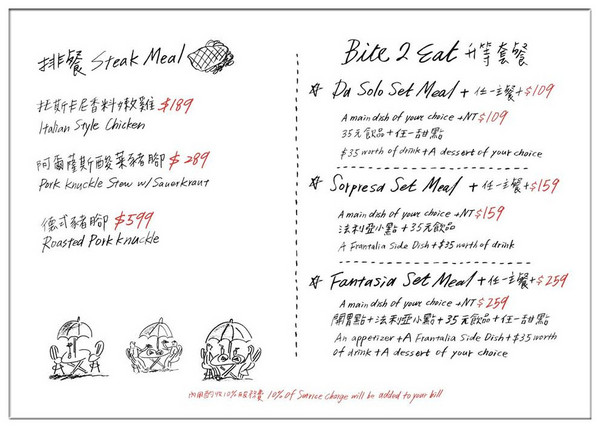 排餐 Steak Meal
托斯卡尼香料嫩雞 $189
Italian Style Chicken
阿爾薩斯酸菜豬腳 $289
Pork Knuckle Stew w/ Sauerkraut
德式豬腳 $599
Roasted Pork Knuckle
Bite 2 Eat 升等套餐
Da Solo Set Meal + 任一主餐+$109
A main dish of your choice +NT$109
35元飲品+任一甜點
$35 worth of drink+A dessert of your choice
Sorpresa Set Meal + 任一主餐+$159
A main dish of your choice +NT$159
法利亞小點+35元飲品
A Frantalia Side Dish+$35 worth of drink
Fantasia Set Meal +任一主餐+$259
A main dish of your choice +NT$259
開胃點+法利亞小點+35元飲品+任一甜點
An appetizer+A Frantalia Side Dish+$35 worth
of drink+A dessert of your choice
內用酌收10%服務費 10% of Service charge will be added to your bill